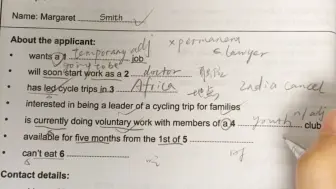 Name: Margaret Smith
About the applicant:
• wants a 1 temporary adj job × permanent
going to be lawyer
• will soon start work as a 2 doctor
• has led cycle trips in 3 Africa
• interested in being a leader of a cycling trip for families
• is currently doing voluntary work with members of a 4 youth n/adj club
• available for five months from the 1st of 5
• can't eat 6
Contact details: